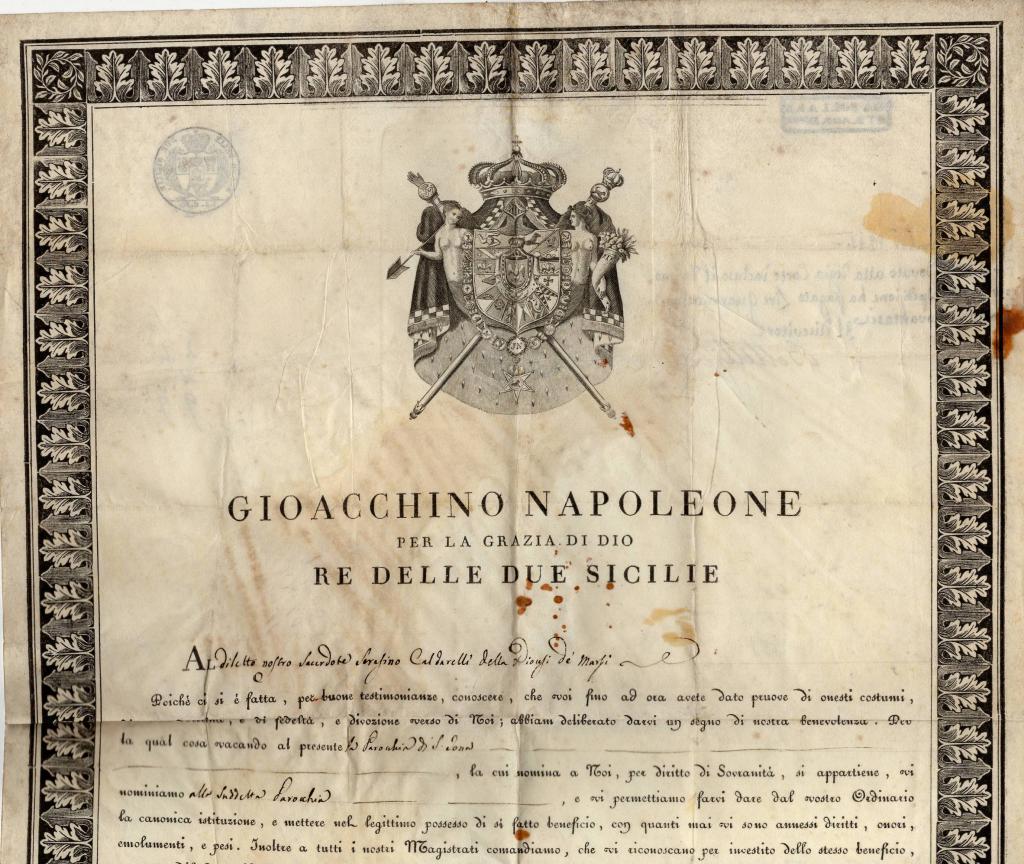 GIOACCHINO NAPOLEONE
PER LA GRAZIA DI DIO
RE DELLE DUE SICILIE
AL diletto nostro Sacerdote Serafino Caldarelli della Diocesi de' Marsi
Poichè ci si è fatta, per buone testimonianze, conoscere, che voi fino ad ora avete dato pruove di onesti costumi,
e di fedeltà, e divozione verso di Noi; abbiam deliberato darvi un segno di nostra benevolenza. Per
la qual cosa vacando al presente la Parochia di S. Iona
, la cui nomina a Noi, per diritto di Sovranità, si appartiene, vi
nominiamo alla suddetta Parochia , e vi permettiamo farvi dare dal vostro Ordinario
la canonica istituzione, e mettere nel legittimo possesso di sì fatto beneficio, con quanti mai vi sono annessi diritti, onori,
emolumenti, e pesi. Inoltre a tutti i nostri Magistrati comandiamo, che vi riconoscano per investito dello stesso beneficio,